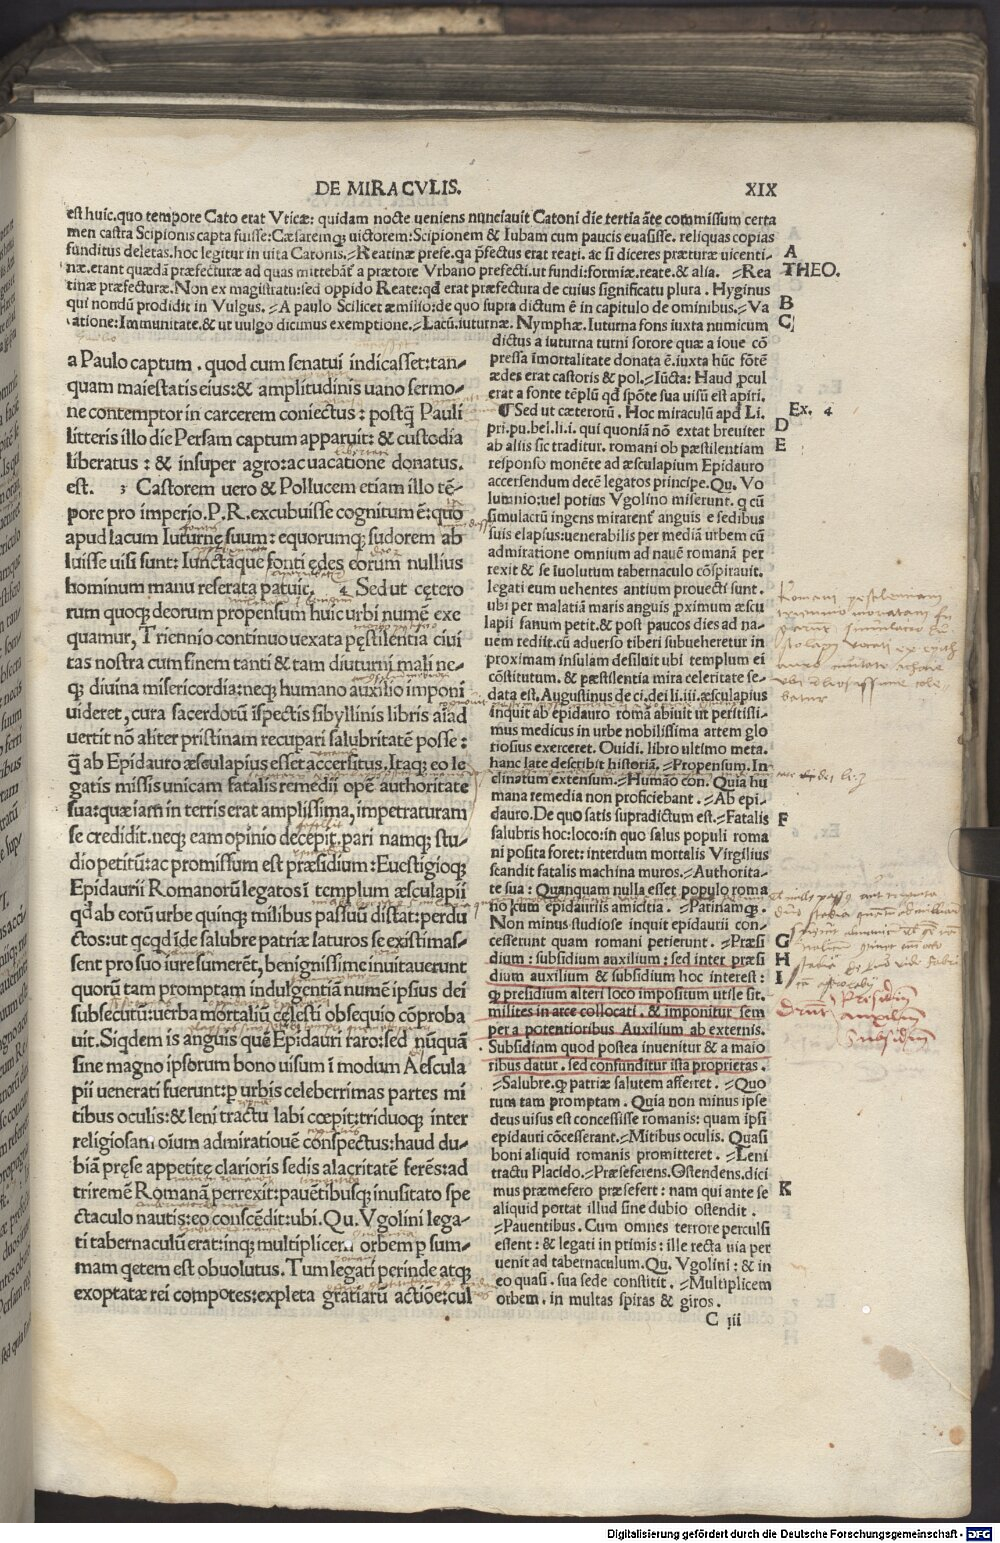 DE MIRACVLIS. XIX
est huic.quo tempore Cato erat Vticæ: quidam nocte ueniens nunciauit Catoni die tertia āte commissum certa
men castra Scipionis capta fuisse:Cæsaremq; uictorem:Scipionem & Iubam cum paucis euasisse. reliquas copias
funditus deletas.hoc legitur in uita Catonis.⸗Reatinæ prefe.qa p̄fectus erat reati. ac si diceres præturæ uicenti⸗
næ.erant quædā præfecturæ ad quas mittebāt a prætore Vrbano prefecti.ut fundi:formiæ.reate.& alia. ⸗Rea
tinæ præfecturæ. Non ex magistratu:sed oppido Reate:qd erat præfectura de cuius significatu plura . Hyginus
qui nondū prodidit in Vulgus. ⸗A paulo Scilicet æmilio:de quo supra dictum ē in capitulo de ominibus.⸗Va
catione:Immunitate.& ut uulgo dicimus exemptione.⸗Lacū.iuturnæ. Nymphæ.Iuturna fons iuxta numicum
A
THEO.
B
C
a Paulo captum . quod cum senatui indicasset:tan⸗
quam maiestatis eius:& amplitudinis uano sermo⸗
ne contemptor in carcerem coniectus : postq̄ Pauli
litteris illo die Persam captum apparuit: & custodia
liberatus : & insuper agro:ac uacatione donatus.
est. 3 Castorem uero & Pollucem etiam illo tē⸗
pore pro imperio.P.R.excubuisse cognitum ē:quo
apud lacum Iuturnę suum: equorumq; sudorem ab
luisse uisi sunt: Iunctaque fonti ędes eorum nullius
hominum manu referata patuit. 4 Sed ut cętero
rum quoq; deorum propensum huic urbi numē exe
quamur, Triennio continuo uexata pęstilentia ciui
tas nostra cum finem tanti & tam diuturni mali ne⸗
q; diuina misericordia:neq; humano auxilio imponi
uideret, cura sacerdotū īspectis sibyllinis libris aīad
uertit nō aliter pristinam recupari salubritatē posse :
q̄ ab Epidauro æsculapius esset accersitus. Itaq; eo le
gatis missis unicam fatalis remedii opē authoritate
sua:quæ iam in terris erat amplissima, impetraturam
se credidit.neq; eam opinio decepit. pari namq; stu⸗
dio petitū:ac promissum est præsidium : Euestigioq;
Epidaurii Romanorū legatos ī templum æsculapii
qd ab eorū urbe quinq; milibus passuū distat: perdu
ctos:ut qcqd īde salubre patriæ laturos se existimas⸗
sent pro suo iure sumerēt, benignissime inuitauerunt
quorū tam promptam indulgentiā numē ipsius dei
subsecutū:uerba mortaliū cęlesti obsequio cōproba
uit. Siqdem is anguis quē Epidauri raro:sed nūquā
sine magno ipsorum bono uisum ī modum Aescula
pii uenerati fuerunt:p urbis celeberrimas partes mi
tibus oculis:& leni tractu labi cœpit:triduoq; inter
religiosam oium admirationē conspectus:haud du⸗
biā pręse appetitę clarioris sedis alacritatē ferēs:ad
triremē Romanā perrexit:pauētibusq; inusitato spe
ctaculo nautis:eo conscēdit:ubi. Qu. Vgolini lega⸗
ti tabernaculū erat:inq; multiplicem orbem p sum⸗
mam qetem est obuolutus. Tum legati perinde atq;
exoptatæ rei compotes:expleta gratiarū actiōe:cul
dictus a iuturna turni sorore quæ a ioue cō
pressa īmortalitate donata ē.iuxta hūc fōtē
ædes erat castoris & pol.⸗Iūcta: Haud pcul
erat a fonte tēplū qd spōte sua uisū est apiri.
¶ Sed ut cæterorū . Hoc miraculū apd Li.
pri.pu.bel.li.i. qui quoniā nō extat breuiter
ab aliis sic traditur. romani ob pæstilentiam
responso monēte ad æsculapium Epidauro
accersendum decē legatos principe. Qu. Vo
lumnio:uel potius Vgolino miserunt. q cū
simulacrū ingens mirarent anguis e sedibus
suis elapsus:uenerabilis per mediā urbem cū
admiratione omnium ad nauē romanā per
rexit & se īuolutum tabernaculo cōspirauit.
legati eum uehentes antium prouecti sunt.
ubi per malatiā maris anguis pximum æscu
lapii fanum petit.& post paucos dies ad na⸗
uem rediit.cū aduerso tiberi subueheretur in
proximam insulam desiluit ubi templum ei
cōstitutum. & pæstilentia mira celeritate se⸗
data est. Augustinus de ci.dei li.iii.æsculapius
inquit ab epidauro romā abiuit ut peritissi⸗
mus medicus in urbe nobilissima artem glo
riosius exerceret. Ouidi. libro ultimo meta.
hanc late describit historiā. ⸗Propensum. In
clinatum extensum. ⸗Humāo con. Quia hu
mana remedia non proficiebant . ⸗Ab epi⸗
dauro. De quo satis supradictum est.⸗Fatalis
salubris hoc:loco:in quo salus populi roma
ni posita foret: interdum mortalis Virgilius
scandit fatalis machina muros. ⸗Authorita⸗
te sua : Quanquam nulla esset populo roma
no cum epidauriis amicitia . ⸗Patinamq; .
Non minus studiose inquit epidaurii con⸗
cesserunt quam romani petierunt . ⸗Præsi
dium : subsidium auxilium : sed inter præsi
dium auxilium & subsidium hoc interest :
q presidium alteri loco impositum utile sit.
milites in arce collocati . & imponitur sem
per a potentioribus Auxilium ab externis.
Subsidium quod postea inuenitur & a maio
ribus datur . sed confunditur ista proprietas .
⸗Salubre.q patriæ salutem afferret . ⸗Quo
rum tam promptam . Quia non minus ipse
deus uisus est concessisse romanis: quam ipsi
epidauri cōcesserant.⸗Mitibus oculis. Quasi
boni aliquid romanis promitteret . ⸗Leni
tractu Placido.⸗Præseferens. Ostendens.dici
mus præmefero præsefert : nam qui ante se
aliquid portat illud sine dubio ostendit .
⸗Pauentibus . Cum omnes terrore perculsi
essent : & legati in primis : ille recta uia per
uenit ad tabernaculum. Qu. Vgolini : & in
eo quasi . sua sede constitit . ⸗Multiplicem
orbem . in multas spiras & giros .
C iii
Ex. 4
D
E
F
G
H
I
Presidium
Auxilium
Subsidium
K
Digitalisierung gefördert durch die Deutsche Forschungsgemeinschaft - DFG